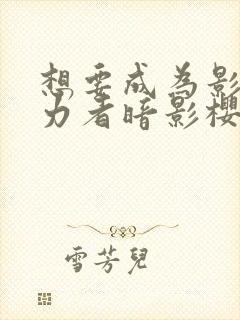 想要成为影
力者暗影樱
雪芳兒